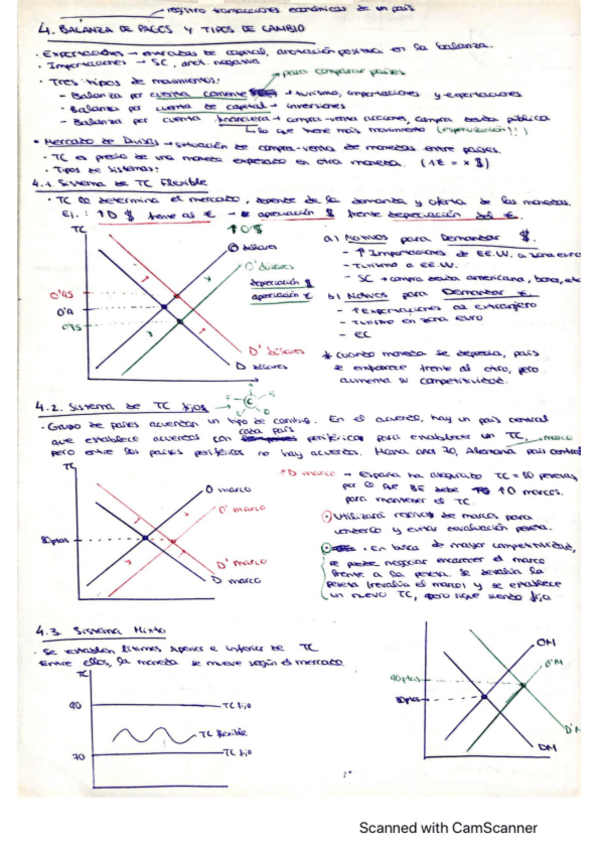 registro transacciones económicas de un país
4. BALANZA DE PAGOS Y TIPOS DE CAMBIO
· Exportaciones → entradas de capital, anotación positiva en la balanza.
· Importaciones → SC, anot. negativa
para comparar países
· Tres tipos de movimientos:
- Balanza por cuenta corriente → turismo, importaciones y exportaciones
- Balanza por cuenta de capital → inversiones
- Balanza por cuenta financiera → compra-venta acciones, compra deuda pública
lo que tiene más movimiento (especulación!!)
· Mercado de Divisas → situación de compra-venta de monedas entre países.
· TC es precio de una moneda expresado en otra moneda. (1€ = x $)
· Tipos de sistemas:
4.1. Sistema de TC Flexible
· TC lo determina el mercado, depende de la demanda y oferta de las monedas.
Ej.: ↑D $ frente al € → apreciación $ frente depreciación del €.
TC
↑O $
O dólares
O' dólares
depreciación $
apreciación €
0'45
0'4
0'35
D' dólares
D dólares
a) Motivos para Demandar $.
- ↑ Importaciones de EE.UU. a zona euro
- Turismo a EE.UU.
- SC → compra deuda americana, bonos, etc
b) Motivos para Demandar €.
- ↑ Exportaciones al extranjero
- Turismo en zona euro
- EC
* Cuando moneda se deprecia, país
se empobrece frente al otro, pero
aumenta su competitividad.
4.2. Sistema de TC fijos
C
· Grupo de países acuerdan un tipo de cambio. En el acuerdo, hay un país central
que establece acuerdos con cada país periféricos para establecer un TC,
marco
pero entre los países periféricos no hay acuerdos. Hasta años 70, Alemania país central
TC
O marco
O' marco
80ptas
D' marco
D marco
↑D marco → España ha asegurado TC = 80 pesetas,
por lo que BE debe ↑O marcos.
para mantener el TC.
Utilizará reservas de marcos para
venderlo y evitar devaluación peseta.
· En busca de mayor competitividad,
se puede negociar encarecer el marco
frente a la peseta. Se devalúa la
peseta (revalúa el marco) y se establece
un nuevo TC, pero sigue siendo fijo
4.3. Sistema Mixto
· Se establecen límites superior e inferior de TC
Entre ellos, la moneda se mueve según el mercado.
TC
90
TC fijo
TC flexible
70
TC fijo
OM
O'M
90ptas
80ptas
D'M
DM
Scanned with CamScanner